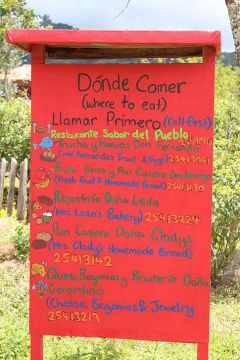 Dónde Comer
(where to eat)
Llamar Primero (Call first)
Restaurante Sabor del Pueblo
Trucha y huevos Don Fernando
(Mr Fernandos Trout & Eggs) 25413081
Fruta fresca y Pan Casero Doña
(Fresh Fruit & Homemade Bread)
Repostería Doña Leda
(Mrs Leda's Bakery) 25413224
Pan Casero Doña Gladys
(Mrs Gladys Homemade Bread)
25413142
Queso, Begonias y Bisutería Doña
Gerardina
(Cheese, Begonias & Jewelry
25413219